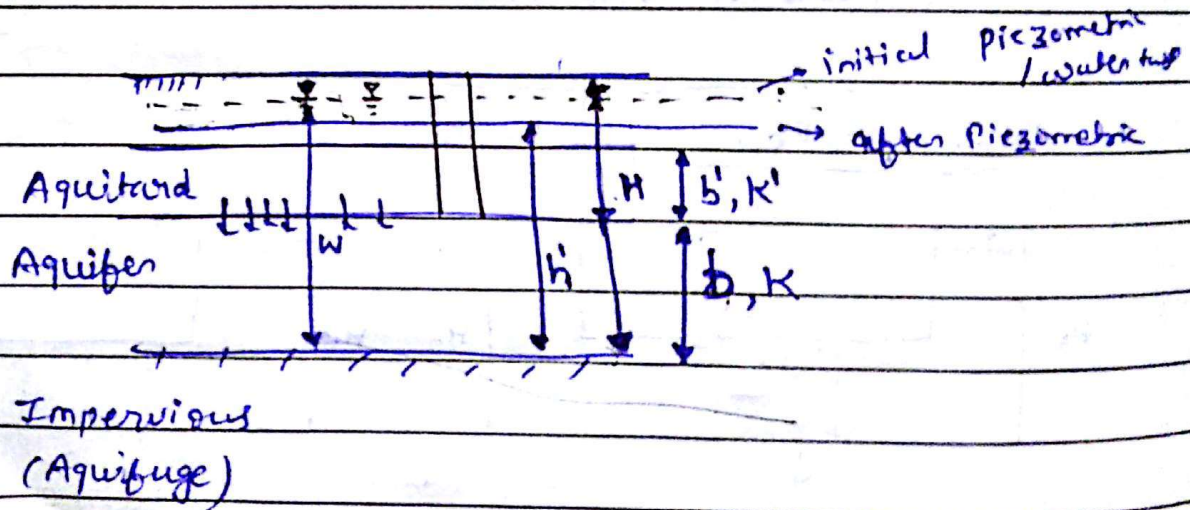 initial piezometric
/ water
after Piezometric
Aquitard
H
b', K'
W
Aquifer
h'
b, K
Impervious
(Aquifuge)